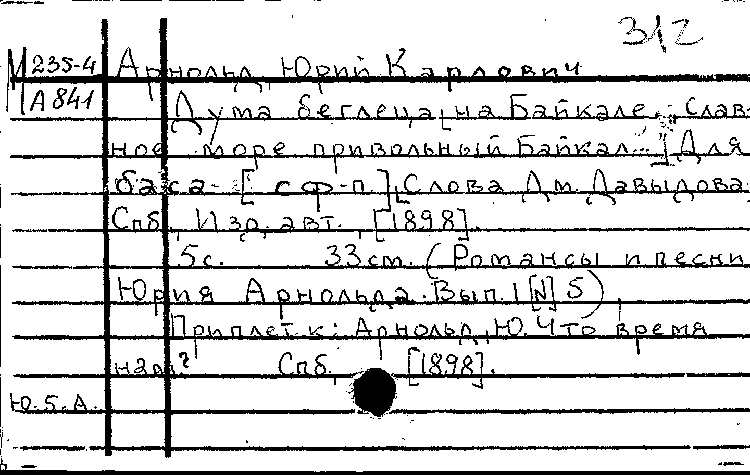 312
М 235-4 Арнольд, Юрий Карлович
А 841 Дума беглеца на Байкале. "Слав-
ное море привольный Байкал..."] Для
баса [с ф-п.] Слова Дм. Давыдова
Спб., Изд. авт., [1898].
5с. 33см. (Романсы и песни
Юрия Арнольда. Вып. 1 [N] 5).
Приплет к: Арнольд, Ю. Что время
нам? Спб., [1898].
Ю.Б.А.